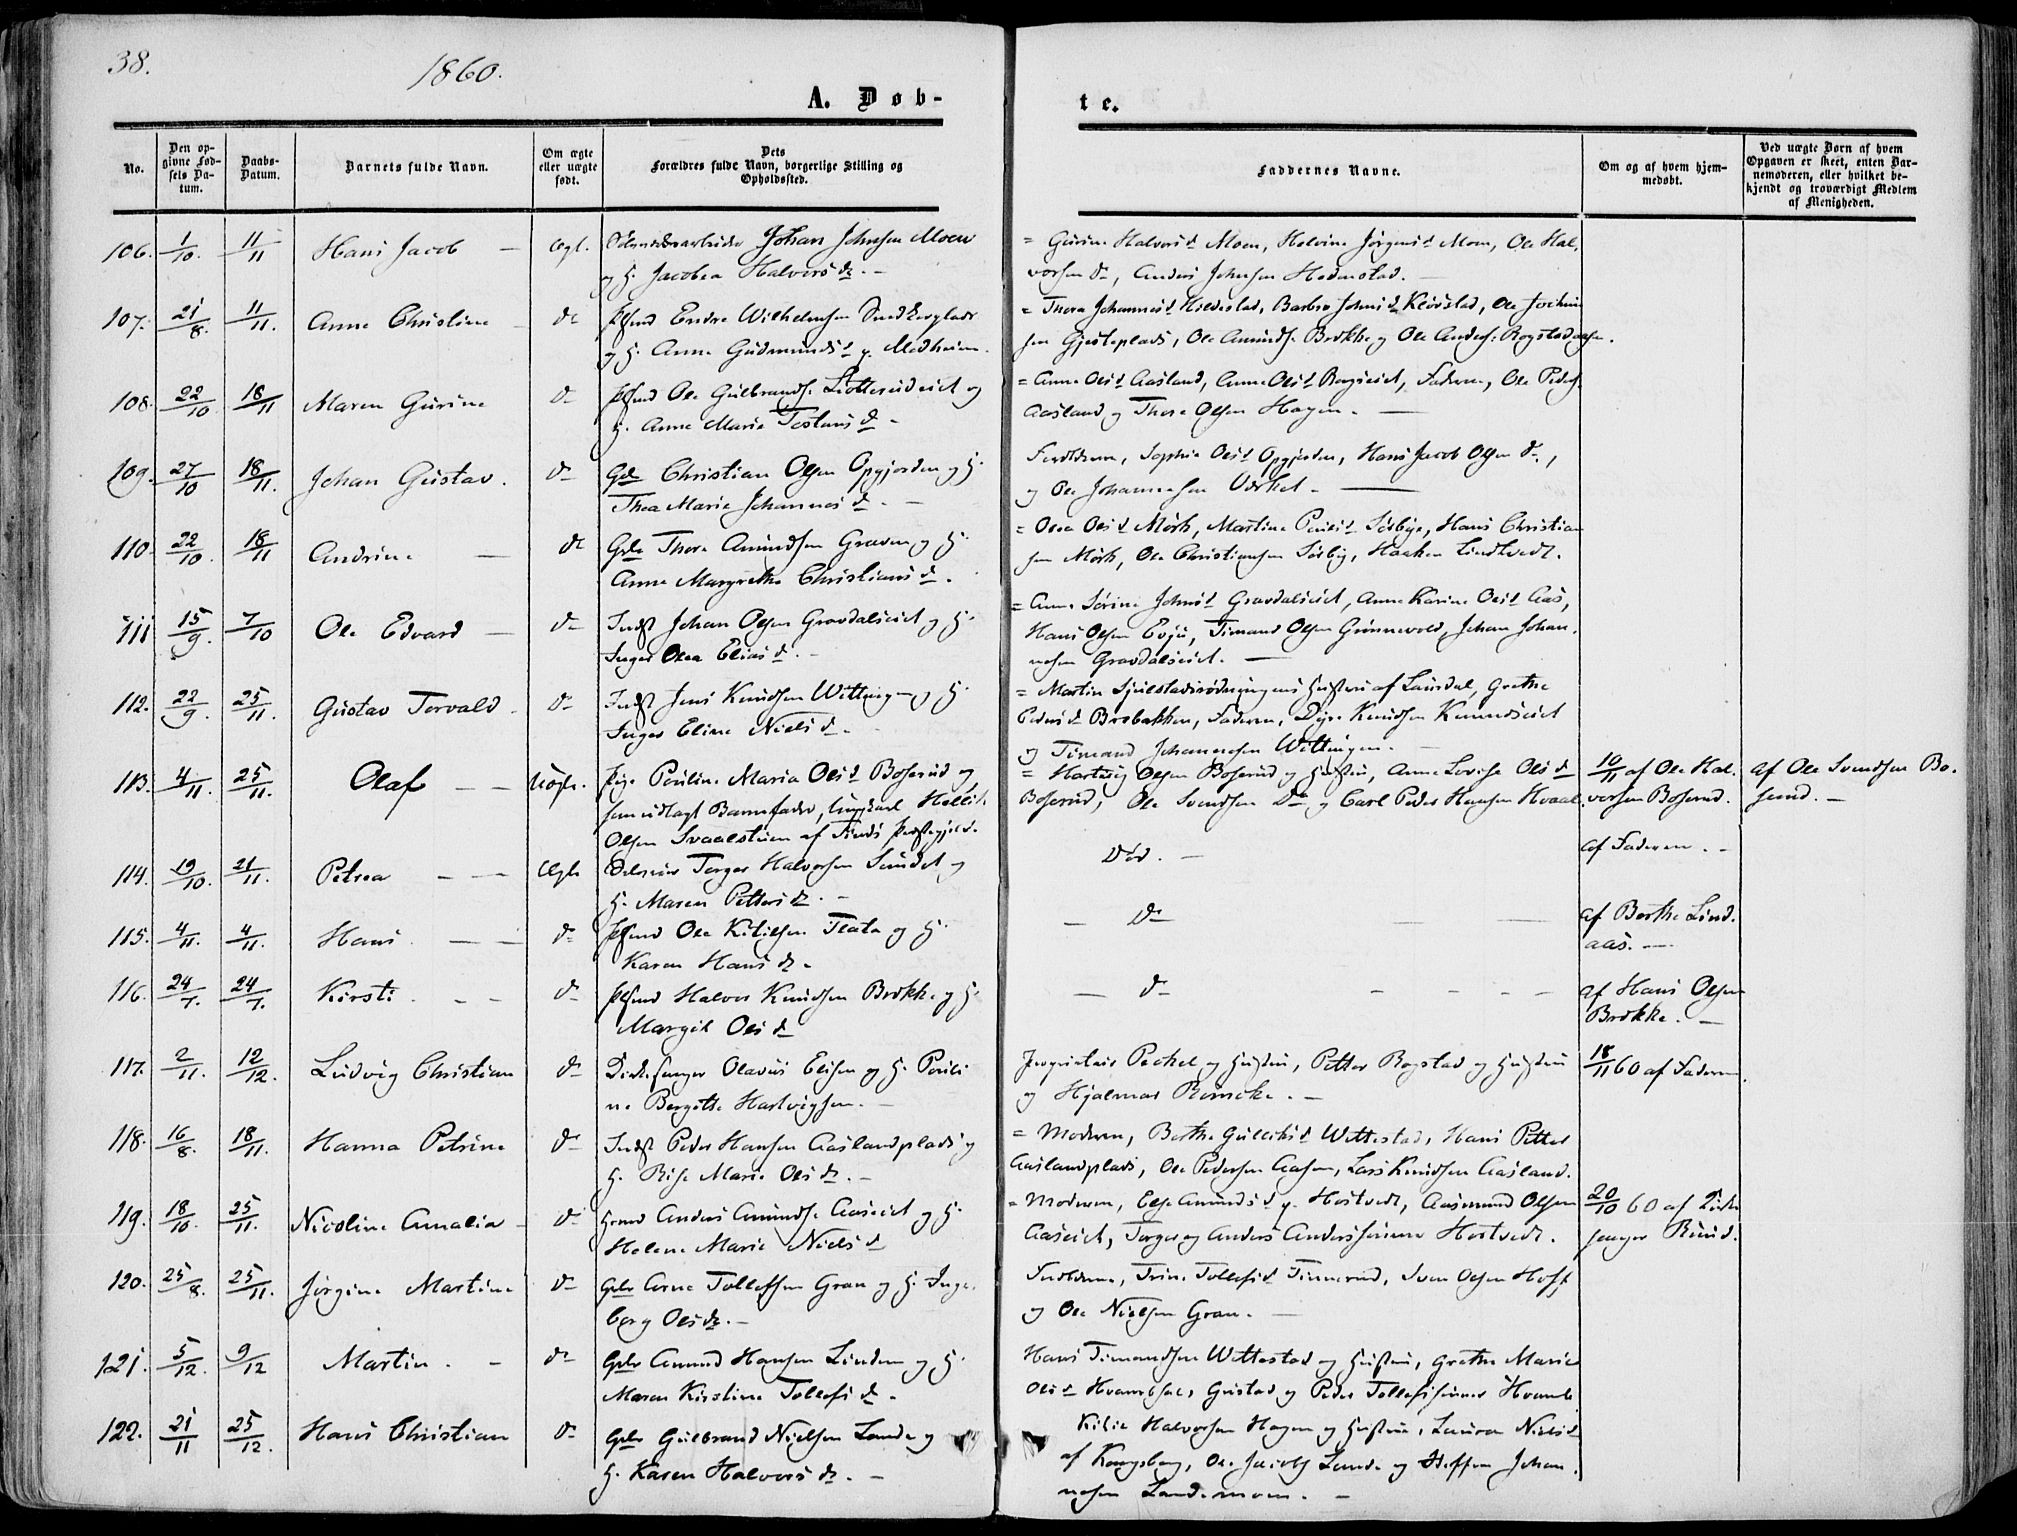 38.
1860.
A. Døb-
te.
No.
Den op-
givne Fød-
sels Da-
tum.
Daabs-
Datum.
Barnets fulde Navn.
Om ægte
eller uægte
født.
Dets
Forældres fulde Navn, borgerlige Stilling og
Opholdssted.
Faddernes Navne.
Om og af hvem hjem-
medøbt.
Ved uægte Børn af hvem
Opgaven er skeet, enten Bar-
nemoderen, eller hvilket be-
kjendt og troværdigt Medlem
af Menigheden.
106. 1/10. 11/11 Hans Jacob — Ægt. Johan Johnsen Moen
og H. Jacobea Halvorsd. —
= Gurine Halvorsd Moen, Helvine Jørgensd Moen, Ole Hal-
vorsen Do, Anders Johnsen Hedenstad. —
107. 21/8. 11/11. Anne Christine — Do Endre Wilhelmsen
og H. Anne Gudmundsd p. Medheim.
= Thora Johannesd Hildestad, Barbro Johnsd Kløvstad, Ole
sen Gjesteplads, Ole Amunds. Brekke og Ole Anders.
108. 22/10 18/11 Maren Gurine Do Plsmd Ole Gulbrands. og
H. Anne Marie
= Anne Olsd Aasland, Anne Olsd, Faderen, Ole Peders.
Aasland og Thore Olsen Hagen. —
109. 27/10 18/11. Johan Gustav. Do Gbr Christian Olsen Opgjorden og H.
Thea Marie Johannesd. —
Forældrene, Sophie Olsd Opgjorden, Hans Jacob Olsen Do,
og Ole Johannesen Værket. —
110. 22/10. 18/11 Andrine — Do Gbr Thore Amundsen Graven og H.
Anne Margrethe Christiansd.
= Olea Olsd Mørk, Martine Poulsd Sørbye, Hans Christian
sen Mørk, Ole Christiansen Sørby, Haaken Lindtvedt.
111 15/9. 7/10 Ole Edvard — Do Indst Johan Olsen Gravdalseiet og H.
Inger Olea Eliasd. —
= Anne Sørine Johnsd Gravdalseiet, Anne Karine Olsd Aas,
Hans Olsen Evju, Timand Olsen Grønnevold, Johan Johan-
nesen Gravdalseiet. —
112. 22/9. 25/11. Gustav Torvald. Do Indst Jens Knudsen Wittingen og H.
Inger Eline Nielsd.
= Martin hustru af Laurdal, Grethe
Pedersd Brobakken, Faderen, Knudsen
og Timand Johannesen Wittingen. —
113. 4/11. 25/11. Olaf — — Uægte. Pige Pauline Maria Olsd Boserud og
som udlagt Barnefader, Ungkarl
Olsen Svaalstuen af Præstegjeld.
= Hartvig Olsen Boserud og hustru, Anne Lovise Olsd
Boserud, Ole Svendsen Do og Carl Peder Hansen Hvaal. 10/11 af Ole Hal-
vorsen Boserud. af Ole Svendsen Bo-
serud. —
114. 19/10. 21/11. Petrea — — Ægte Torger Halvorsen Sundet og
H. Maren Pettersd. —
Død. — af Faderen. —
115. 4/11. 4/11. Hans. — — Do Plsmd Ole Kittilsen Teata og H.
Karen Hansd.
— Do — — af Berthe Lind-
aas. —
116. 24/7. 24/7. Kirsti. — — Do Plsmd Halvor Knudsen Brekke og H.
Margit Olsd
— Do — — — — af Hans Olsen
Brekke. —
117. 2/11. 12/12. Ludvig Christian Do Kirkesanger Olavus Elisen og H. Pauli
ne Bergitte Hartvigsen. —
Proprietair Peckel og hustru, Petter Rogstad og hustru
og Hjalmar Reincke. — 18/11 60 af Faderen.
118. 16/8. 18/11. Hanna Petrine Do Indst Peder Hansen Aaslandplads og
H. Rise Marie Olsd. —
= Moderen, Berthe Gulliksd Wittestad, Hans Petter
Aaslandplads, Ole Pedersen Aasen, Lars Knudsen Aasland.
119. 18/10. 25/11. Nicoline Amalia — Do Anders Amunds. Aaseiet og H.
Helene Marie Nielsd
= Moderen, Else Amundsd p. Hostvedt, Aasmund Olsen
Aaseiet, Torger og Anders Anderssønner Hostvedt. 20/10 60 af Kirke
sanger Ruud.
120. 25/8. 25/11. Jørgine Martine Do Gbr Arne Tollefsen Gran og H. Inge-
borg Olsd. —
Forældrene, Trine Tollefsd Tinnerud, Sven Olsen Hoff
og Ole Nielsen Gran. —
121. 5/12. 9/12 Martin. — Do Gbr Amund Hansen Linden og H.
Maren Kirstine Tollefsd.
Hans Timandsen Wittestad og hustru, Grethe Marie
Olsd, Gustav og Peder Tollefssønner
122. 21/11 25/12. Hans Christian Do Gbr Gulbrand Nielsen Lande og
H. Karen Halvorsd. —
Kittil Halvorsen Hagen og hustru, Laura Nielsd
af Kongsberg, Ole Jacobs. Lunde og Steffen Johan-
nesen Landemoen. —